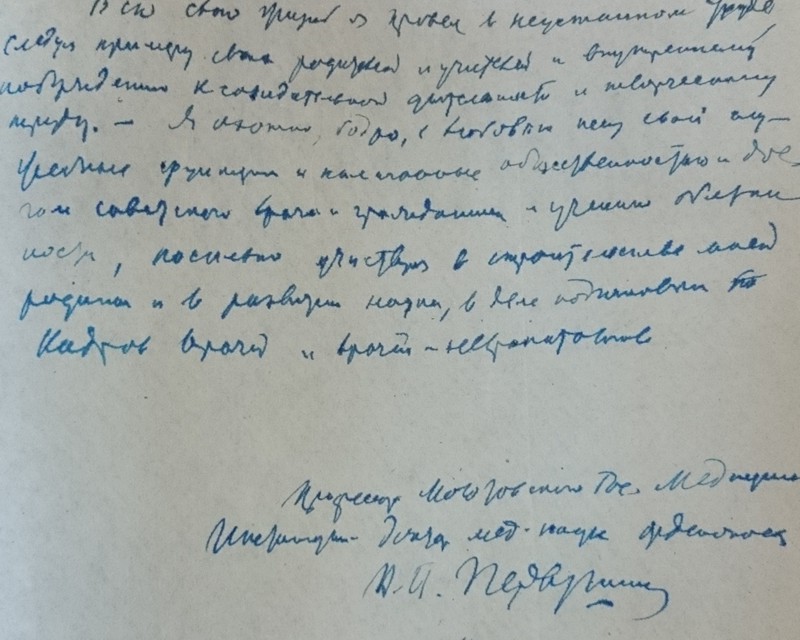 Всю свою жизнь я провел в неустанном труде
следуя примеру своих родителей и учителей и внутреннему
побуждению к созидательной деятельности и творческому
труду. — Я охотно, бодро, с любовью несу свои
функции и общественностью и дол-
гом советского врача и гражданина и ученого обязан
ности, посильно участвуя в строительстве моей
родины и в развитии науки, в деле подготовки
Кадров врачей и врачей-невропатологов
Профессор Московского Гос. Медицин
Института доктор мед. наук орденоносец
Первушин